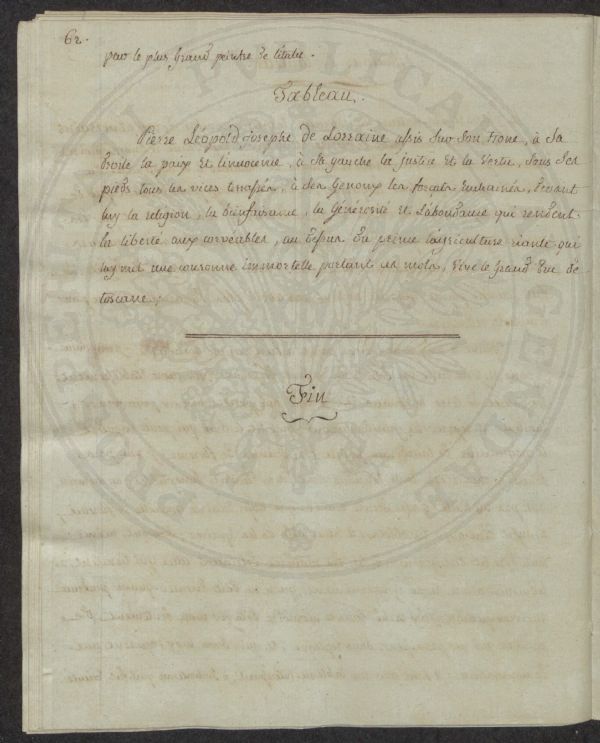 62.
pour le plus grand peintre de l'italie.
Tableau.
Pierre Léopold josephe de Lorraine assis sur son trone, à sa
droite la paix et l'innocence, à sa gauche la justice et la vertu, sous ses
pieds tous les vices terrassés, à ses genoux les forçats enchainés, devant
luy la religion, la bienfaisance, la générosité et l'abondance qui rendent
la liberté aux corvéables, au dessus du peinne l'agriculture riante qui
luy met une couronne immortelle portant ces mots, vive le grand Duc de
toscane.
Fin